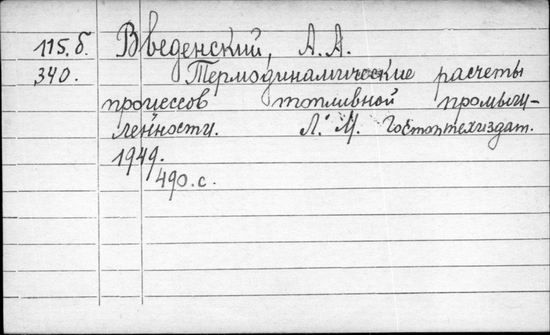 115.б. Введенский, А.А.
340. Термодинамические расчеты
процессов топливной промыш-
ленности. Л. М. Гостоптехиздат.
1949.
490.с.